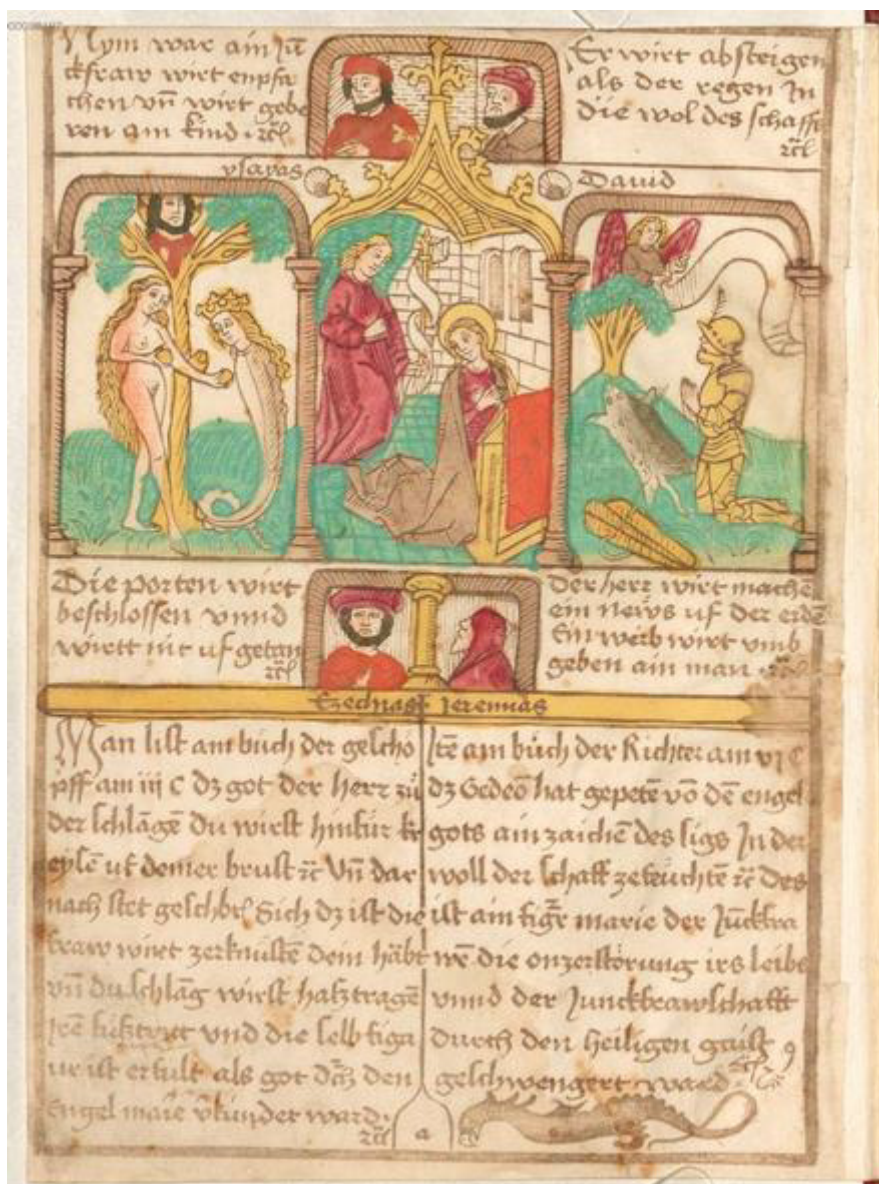 Nym war ain Jū
ckfraw wirt enpfa
chen vñ wirt gebe
ren ain kind · ꝛc̄
Er wirt absteigen
als der regen In
die wol des schaffs
ꝛc̄
ysayas
David
Die porten wirt
beschlossen vnnd
wirtt nit uf getan
ꝛc̄
Der herr wirt machē
ein news uf der erdē
Ein weib wirt vmb
geben ain man · ꝛc̄
Ezechiel Jeremias
Man list am bůch der gescho
pff am iii C dz got der herr zů
der schlāgē du wirst hinfür kr
eylē uf deiner brust ꝛc Vñ dar
nach stet geschbē Sich dz ist die
fraw wirt zerknustē dein häbt
vñ du schlāg wirst haßtragē
irē fůßtryt vnd die selb figa
ur ist erfult als got dch den
Engel marie vkündet ward ·
ꝛc̄
Itē am bůch der Richter am vi C
dz Gedeō hat gepetē vō dē engel
gots ain zaichē des sigs In der
woll der schaff zefeüchtē ꝛc Des
ist ain figr marie der Jūckfra
wē die onzerstörung irs leibs
vnnd der Junckfrawschafft
durch den heiligen gaist
geschwengert ward
a